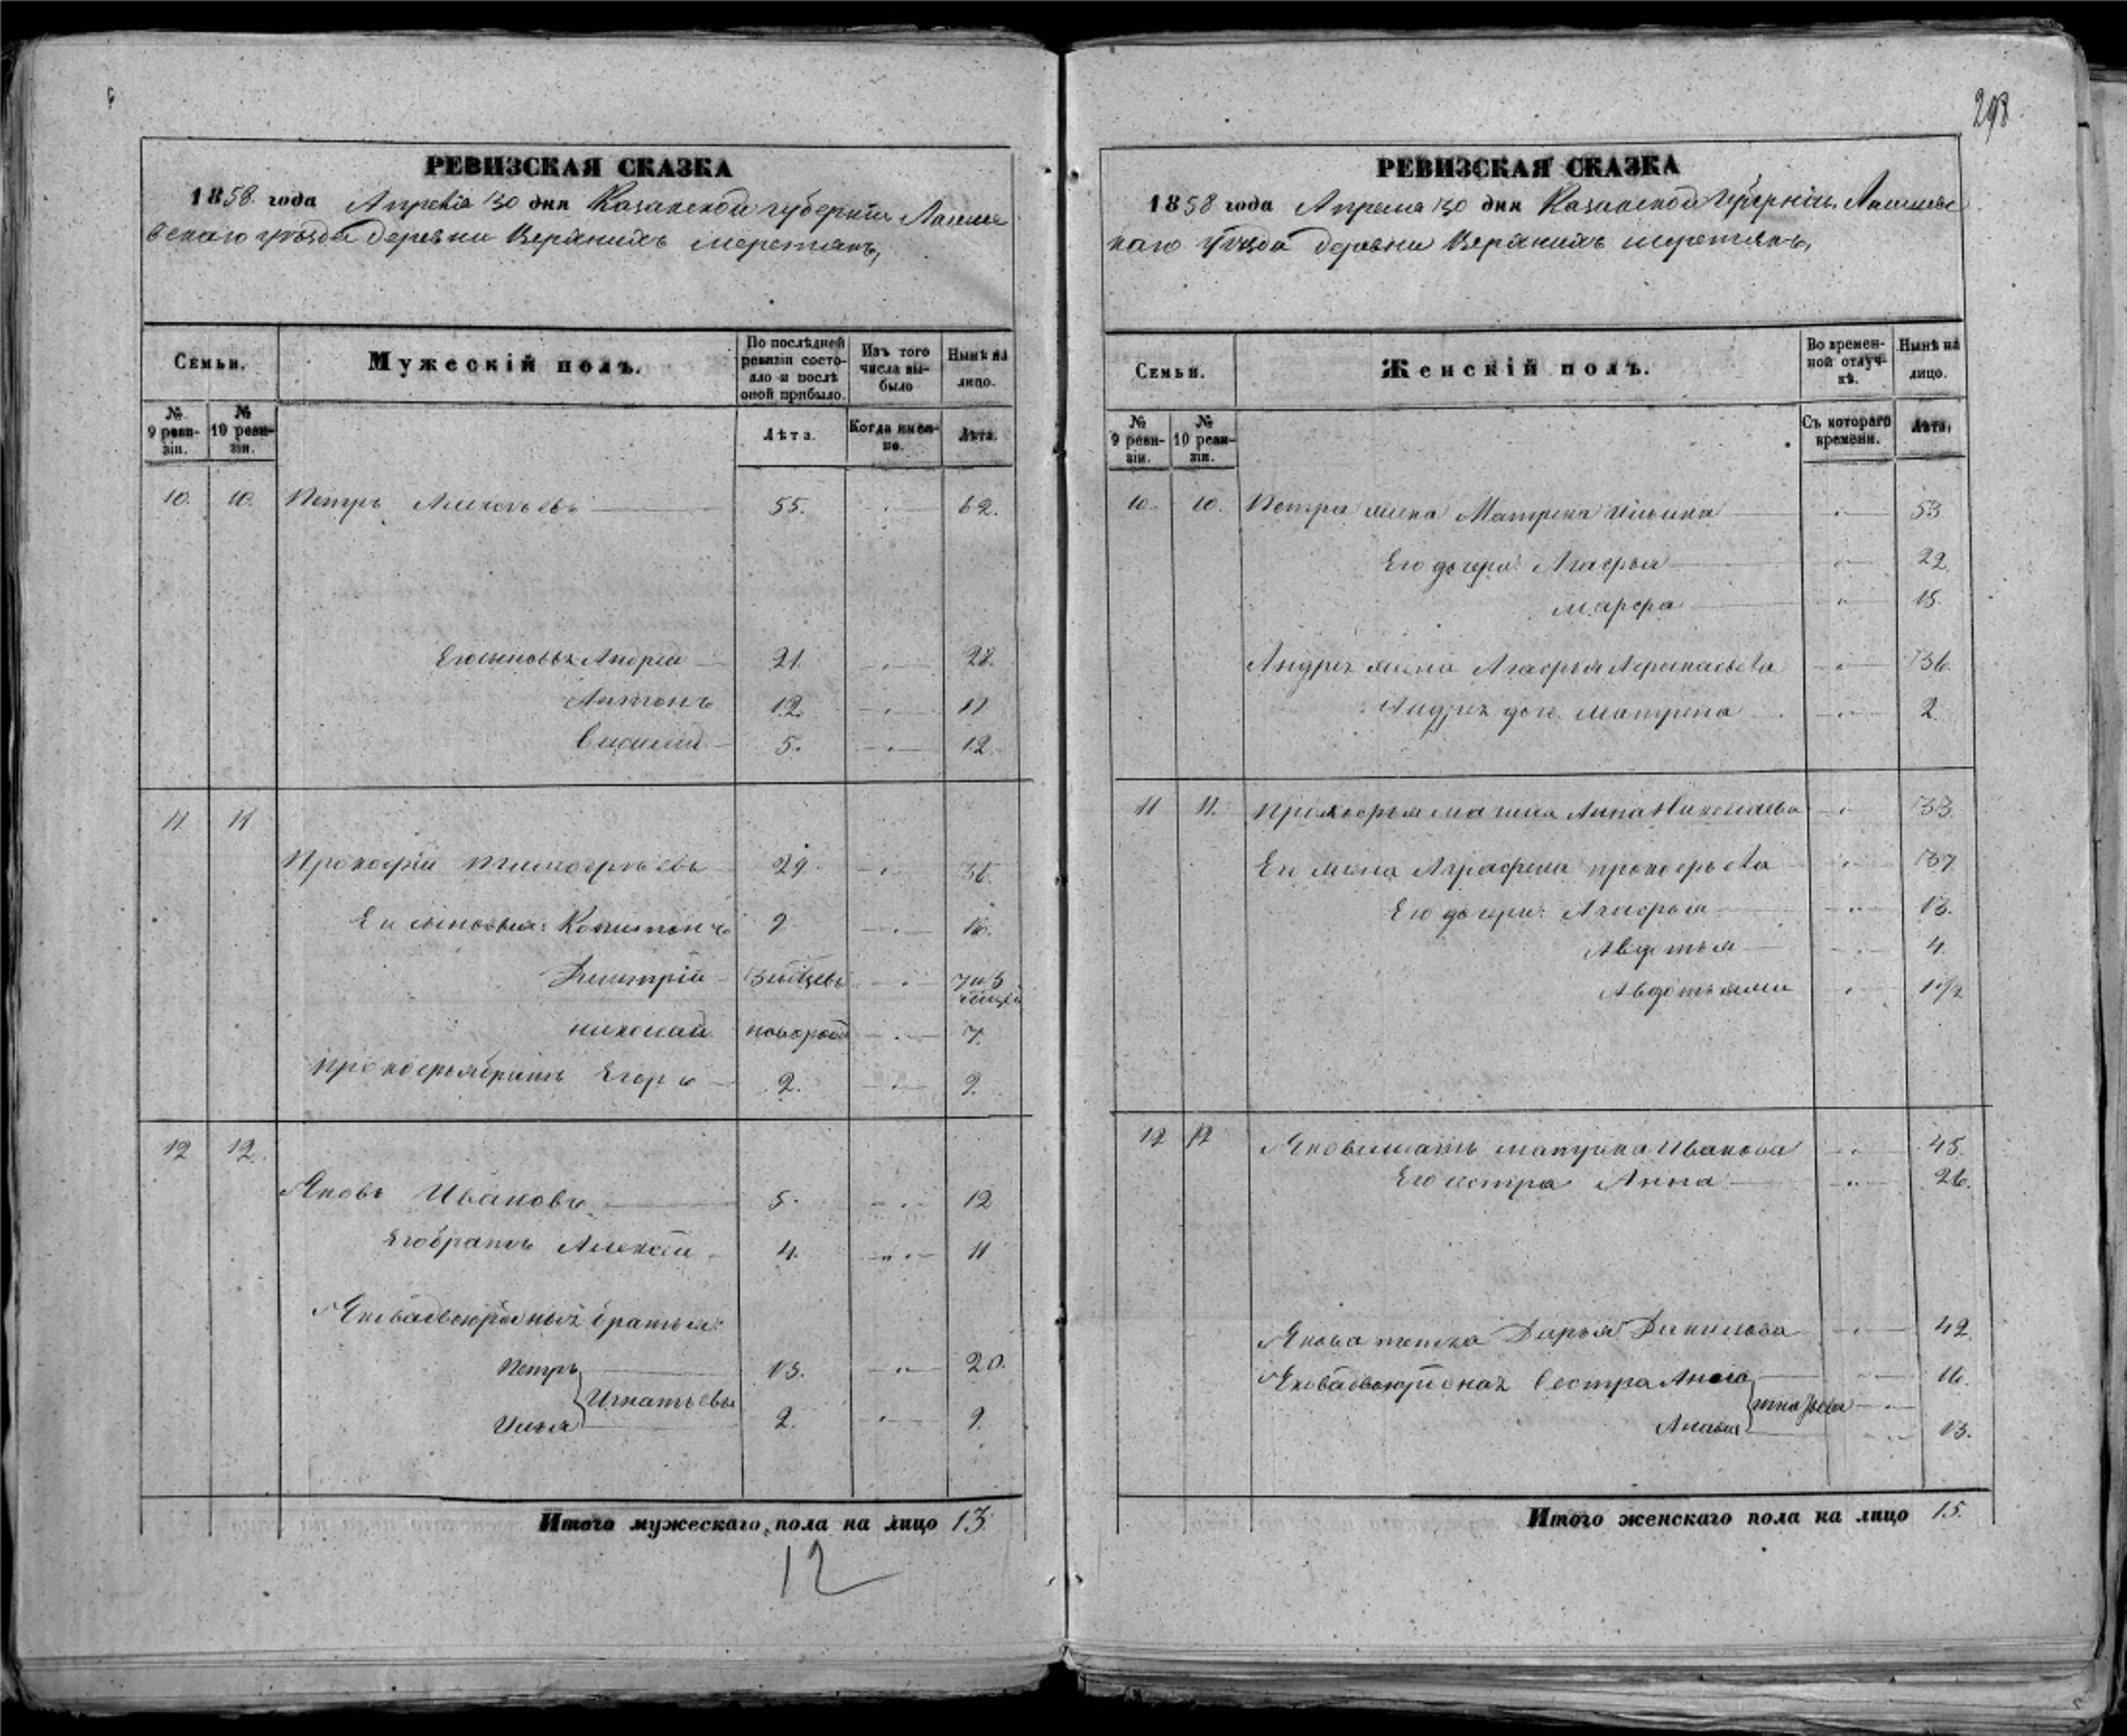 РЕВИЗСКАЯ СКАЗКА
1858 года Апреля 30 дня Казанской губернии Лаише
вскаго уѣзда деревни Верхнихъ меретякъ,
Семьи.
Мужескій полъ.
По послѣдней ревизіи состояло и послѣ оной прибыло.
Изъ того числа выбыло
Нынѣ на лицо.
№ 9 ревизіи.
№ 10 ревизіи.
Лѣта.
Когда именно.
Лѣта.
10. 10. Петръ Алексѣевъ 55. 62.
Его сыновья Андрей 21. 28.
Антонъ 12. 11
Василий 5. 12.
11. 11
Прокофій Тимофеевъ 29. 36.
Его сыновья: Капитонъ 9 16.
Дмитрій 7
николай новорож 7.
Прокофья братъ Егоръ 2. 9.
12 12.
Яковъ Ивановъ 5. 12
Его братъ Алексѣй 4. 11
Якова двоюродныя братья:
Петръ 13. 20.
Игнатьевы
Илья 2. 9.
Итого мужескаго пола на лицо 13
12
298
РЕВИЗСКАЯ СКАЗКА
1858 года Апреля 30 дня Казанской губерніи Лаишевс
каго уѣзда деревни Верхнихъ меретякъ,
Семьи.
Женскій полъ.
Во временной отлучкѣ.
Нынѣ на лицо.
№ 9 ревизіи.
№ 10 ревизіи.
Съ котораго времени.
Лѣта.
10. 10. Петра жена Матрена Ильина 53
Его дочери: Агафья 22.
марфа 15.
Андрея жена Агафья Афанасьева 36.
Андрея доч. Матрена 2.
11 11. Прокофья мачиха Анна Николаева 33.
Его жена Аграфена прокофьева 37
Его дочери: Агафья 13.
Авдотья 4.
Авдотья 1 1/2
12 12 Якова мать матрена Иванова 45.
Его сестра Анна 26.
Якова тетка Дарья Данилова 42.
Якова двоюродная Сестра 16.
13.
Итого женскаго пола на лицо 15.